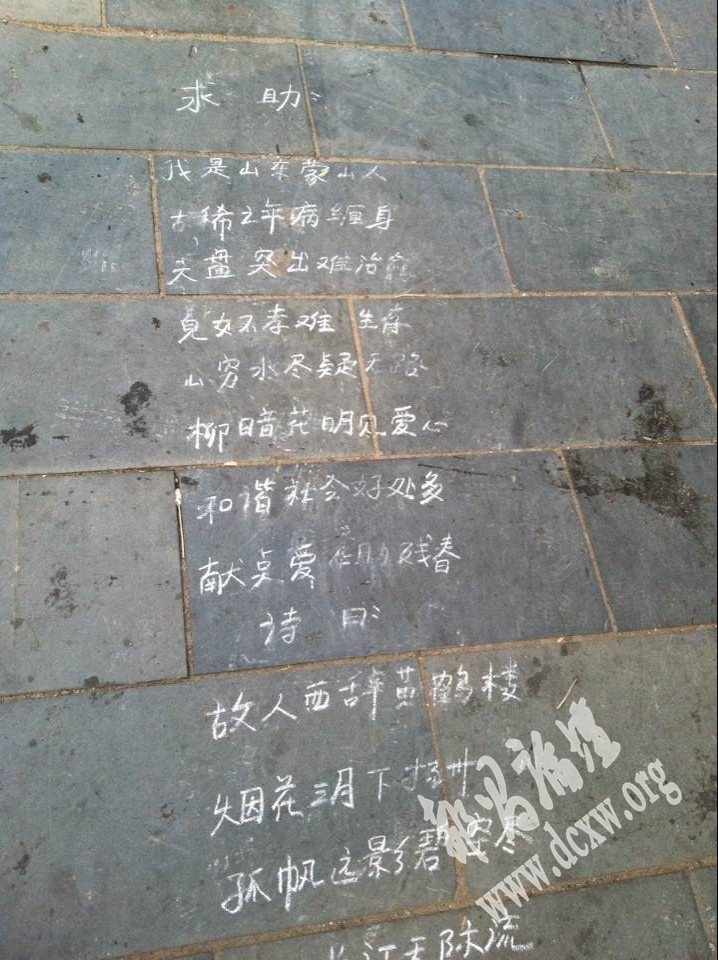 求助:
我是山东蒙山人
古稀之年病缠身
关盘突出难治愈
児女不孝难生存
山穷水尽疑无路
柳暗花明见爱心
和谐社会好处多
献点爱心助残春
诗曰:
故人西辞黄鹤楼
烟花三月下扬州
孤帆远影碧空尽
长江天际流
www.dcxw.org